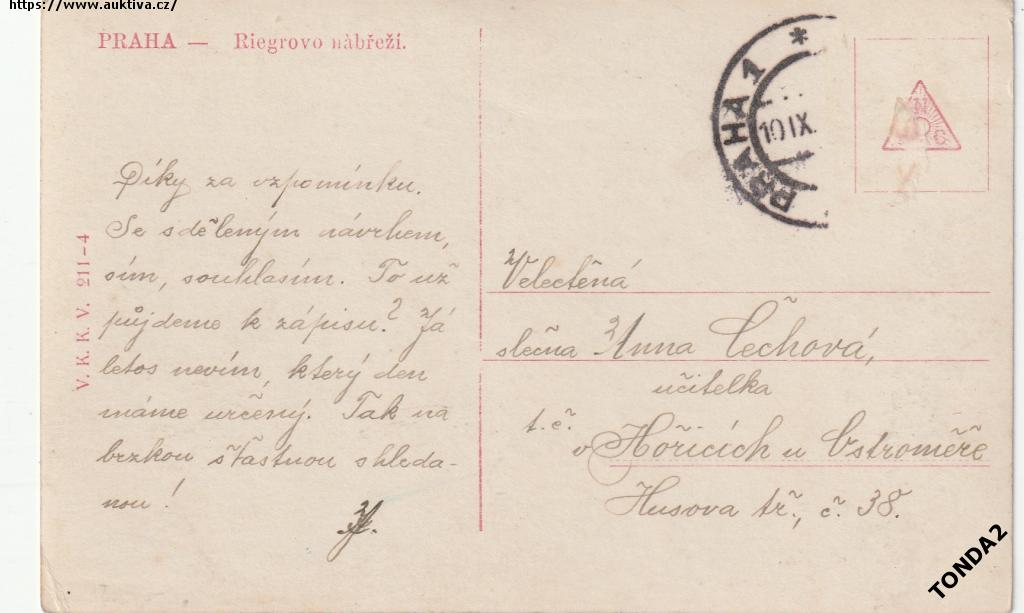 https://www.auktiva.cz/
PRAHA — Riegrovo nábřeží.
PRAHA 1 *
10 IX.
V. K. K. V. 211-4
Díky za vzpomínku.
Se sděleným návrhem,
sím, souhlasím. To už
půjdeme k zápisu? Já
letos nevím, který den
máme určený. Tak na
brzkou šťastnou shleda-
nou!
Velectěná
slečna Anna Čechová,
učitelka
t. č.
v Hořicích u Ostroměře
Husova tř., č. 38.
TONDA2